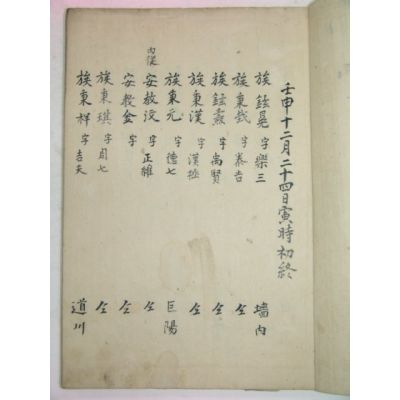 壬申十二月二十四日寅時初終
族鉉晃 字樂三 墻內
族秉鉞 字泰吉 仝
族鉉燾 字禹賢 仝
族秉漢 字漢 仝
族秉元 字德七 巨陽
內從 安敎汶 字正維 仝
安敎金 字 仝
族秉琪 字周七 仝
族秉祥 字吉夫 道川